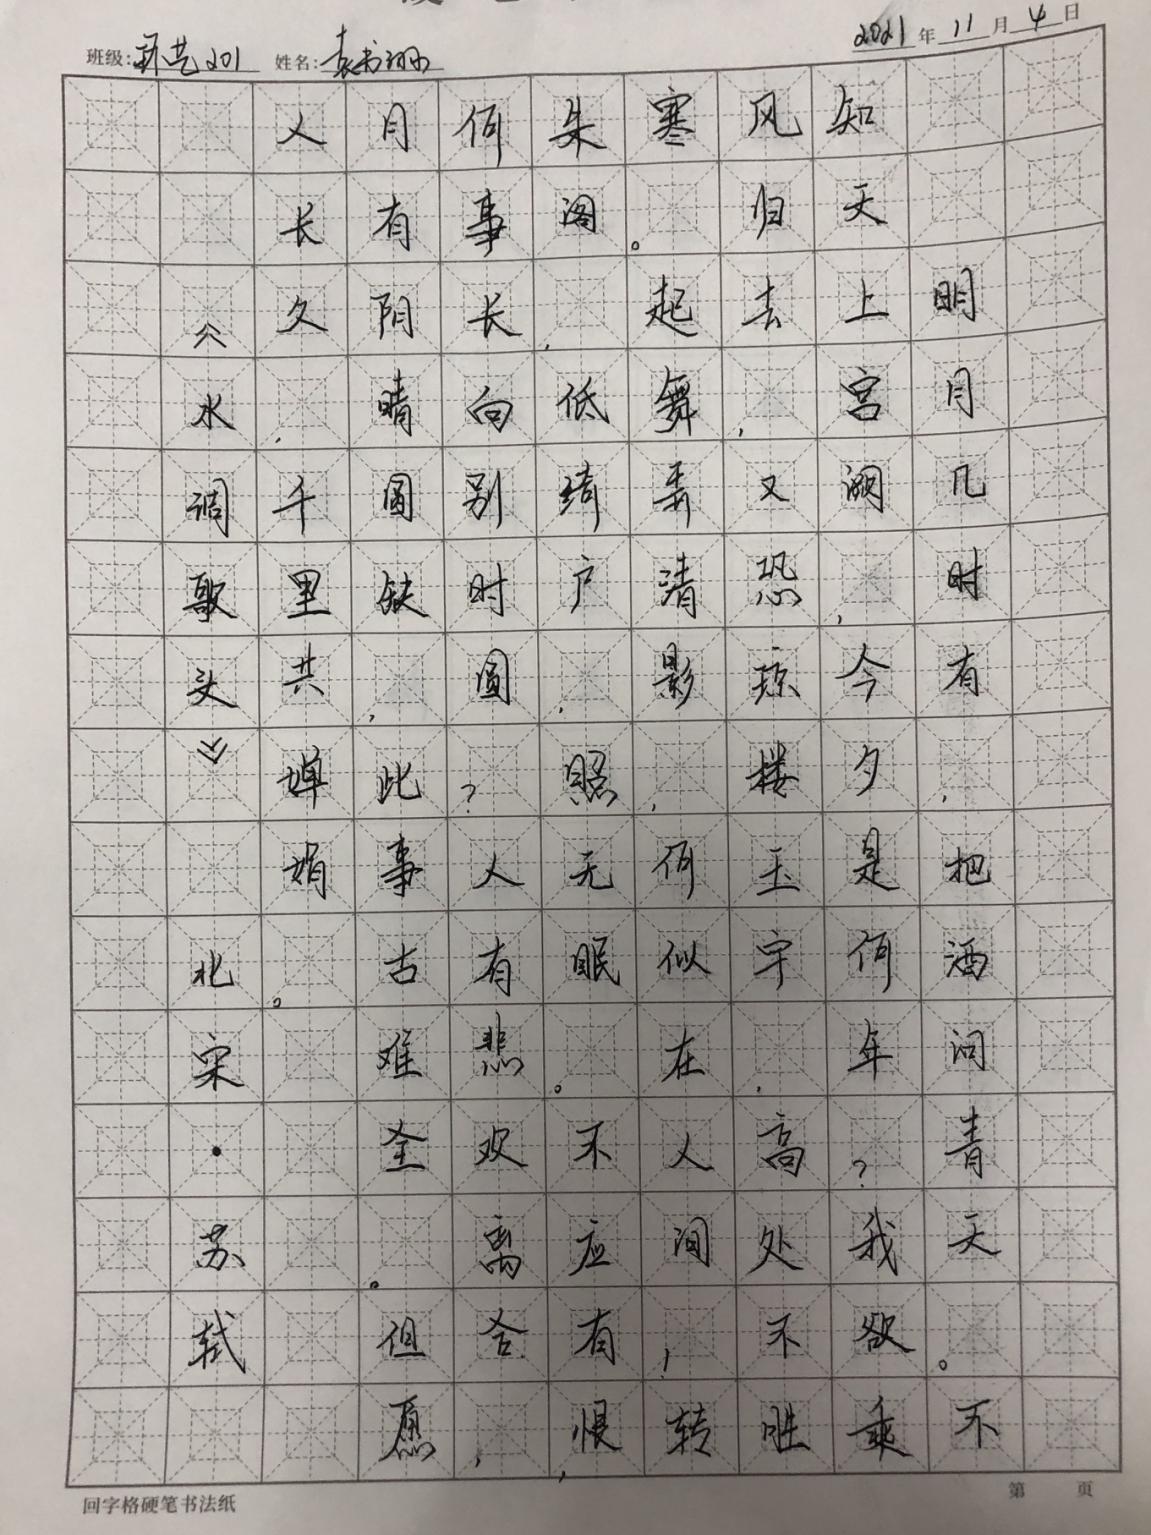 班级:环艺201 姓名:袁书珊 2021年11月4日
明月几时有,把酒问青天。不
知天上宫阙,今夕是何年?我欲乘
风归去,又恐琼楼玉宇,高处不胜
寒。起舞弄清影,何似在人间,转
朱阁,低绮户,照无眠。不应有恨,
何事长向别时圆?人有悲欢离合,
月有阴晴圆缺,此事古难全。但愿
人长久,千里共婵娟。
《水调歌头》北宋·苏轼
回字格硬笔书法纸 第 页